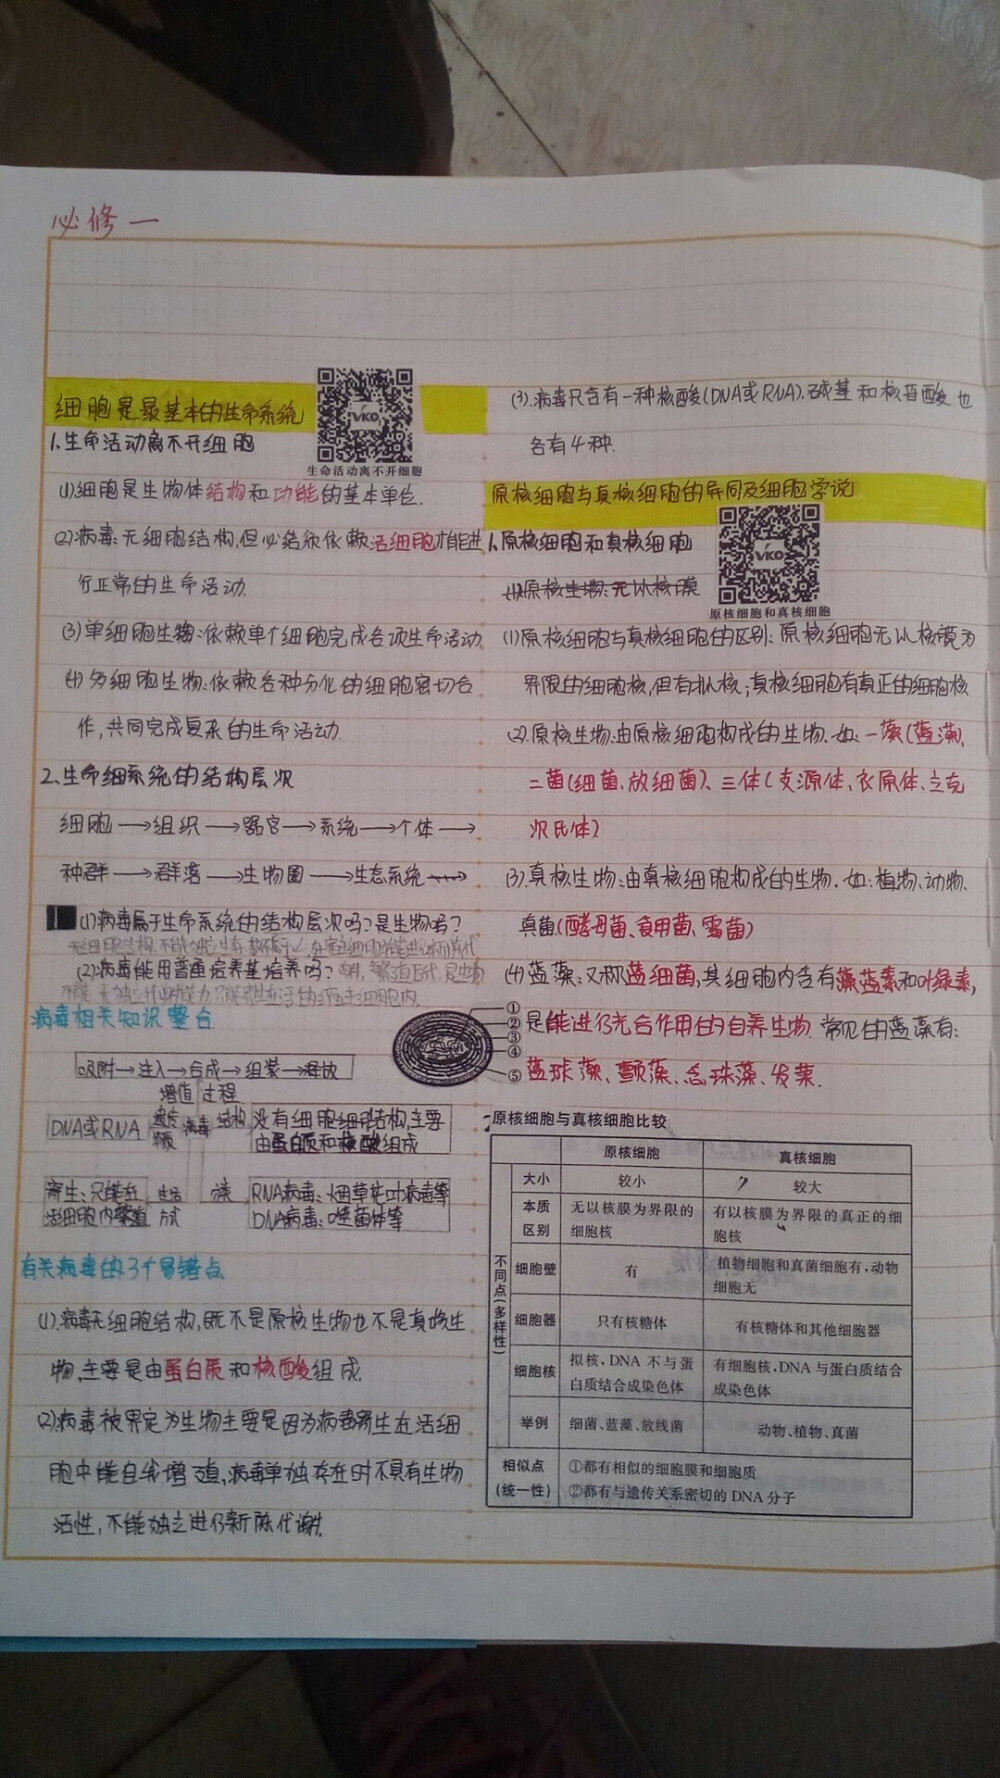 必修一
细胞是最基本的生命系统
VKO
生命活动离不开细胞
1.生命活动离不开细胞
(1)细胞是生物体结构和功能的基本单位.
(2)病毒:无细胞结构,但必须依赖活细胞才能进
行正常的生命活动.
(3)单细胞生物:依赖单个细胞完成各项生命活动.
(4)多细胞生物:依赖各种分化的细胞密切合
作,共同完成复杂的生命活动.
2.生命系统的结构层次
细胞→组织→器官→系统→个体→
种群→群落→生物圈→生态系统
(1)病毒属于生命系统的结构层次吗?是生物吗?
(2)病毒能用普通培养基培养吗?
病毒相关知识整合
吸附→注入→合成→组装→释放
增值 过程
DNA或RNA 遗传 病毒 结构 没有细胞结构,主要
由蛋白质和核酸组成
寄生:只能在 生活 分类 RNA病毒:烟草花叶病毒等
活细胞内 方式 DNA病毒:噬菌体等
有关病毒的3个易错点
(1)病毒无细胞结构,既不是原核生物也不是真核生
物,主要是由蛋白质和核酸组成.
(2)病毒被界定为生物主要是因为病毒寄生在活细
胞中能自我增殖,病毒单独存在时不具有生物
活性,不能独立进行新陈代谢.
(3).病毒只含有一种核酸(DNA或RNA).碱基和核苷酸也
各有4种.
原核细胞与真核细胞的异同及细胞学说
VKO
原核细胞和真核细胞
1.原核细胞和真核细胞
(1)原核生物:无以核膜
(1)原核细胞与真核细胞的区别:原核细胞无以核膜为
界限的细胞核,但有拟核;真核细胞有真正的细胞核
(2).原核生物:由原核细胞构成的生物.如:一藻(蓝藻),
二菌(细菌、放线菌)、三体(支原体、衣原体、立克
次氏体)
(3).真核生物:由真核细胞构成的生物.如:植物、动物、
真菌(酵母菌、食用菌、霉菌)
(4)蓝藻:又称蓝细菌,其细胞内含有藻蓝素和叶绿素,
是能进行光合作用的自养生物.常见的蓝藻有:
蓝球藻、颤藻、念珠藻、发菜.
①
②
③
④
⑤
原核细胞与真核细胞比较
原核细胞 真核细胞
不同点(多样性)
大小 较小 较大
本质区别 无以核膜为界限的细胞核 有以核膜为界限的真正的细胞核
细胞壁 有 植物细胞和真菌细胞有,动物细胞无
细胞器 只有核糖体 有核糖体和其他细胞器
细胞核 拟核,DNA不与蛋白质结合成染色体 有细胞核,DNA与蛋白质结合成染色体
举例 细菌、蓝藻、放线菌 动物、植物、真菌
相似点(统一性) ①都有相似的细胞膜和细胞质
②都有与遗传关系密切的DNA分子